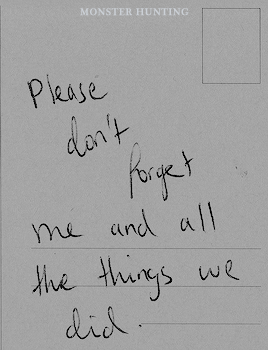 MONSTER HUNTING
Please
don't
forget
me and all
the things we
did.